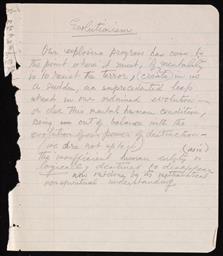 Evolutionism
Our explosive progress has come to
the point where it must, if mentality
is to resist the terror, (create) in us
a sudden, an unprecedented leap
ahead in our ordained evolution —
or else this mental human condition,
being in out of balance with the
evolution of our powers of destruction —
(we dare not apply)
(will)
the insufficient human entity is
logically destined to disappear
now by its
nonspiritual understanding